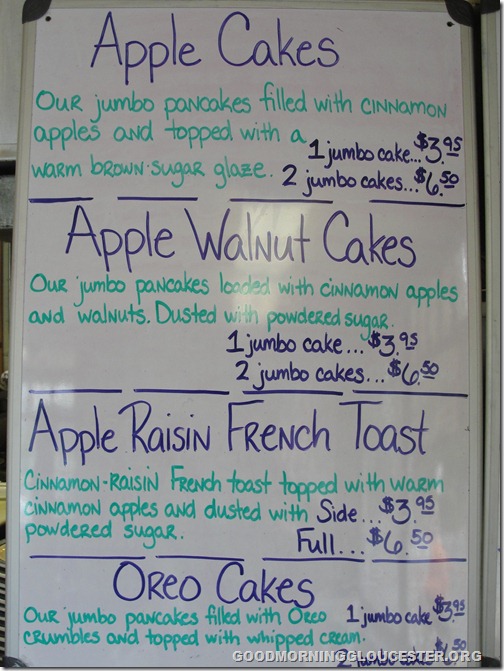 Apple Cakes
Our jumbo pancakes filled with cinnamon
apples and topped with a
warm brown-sugar glaze.
1 jumbo cake...$3.95
2 jumbo cakes...$6.50
Apple Walnut Cakes
Our jumbo pancakes loaded with cinnamon apples
and walnuts. Dusted with powdered sugar.
1 jumbo cake...$3.95
2 jumbo cakes...$6.50
Apple Raisin French Toast
Cinnamon-Raisin French toast topped with warm
cinnamon apples and dusted with
powdered sugar.
Side...$3.95
Full....$6.50
Oreo Cakes
Our jumbo pancakes filled with Oreo
crumbles and topped with whipped cream.
1 jumbo cake $3.95
jumbo cakes
GOODMORNINGGLOUCESTER.ORG